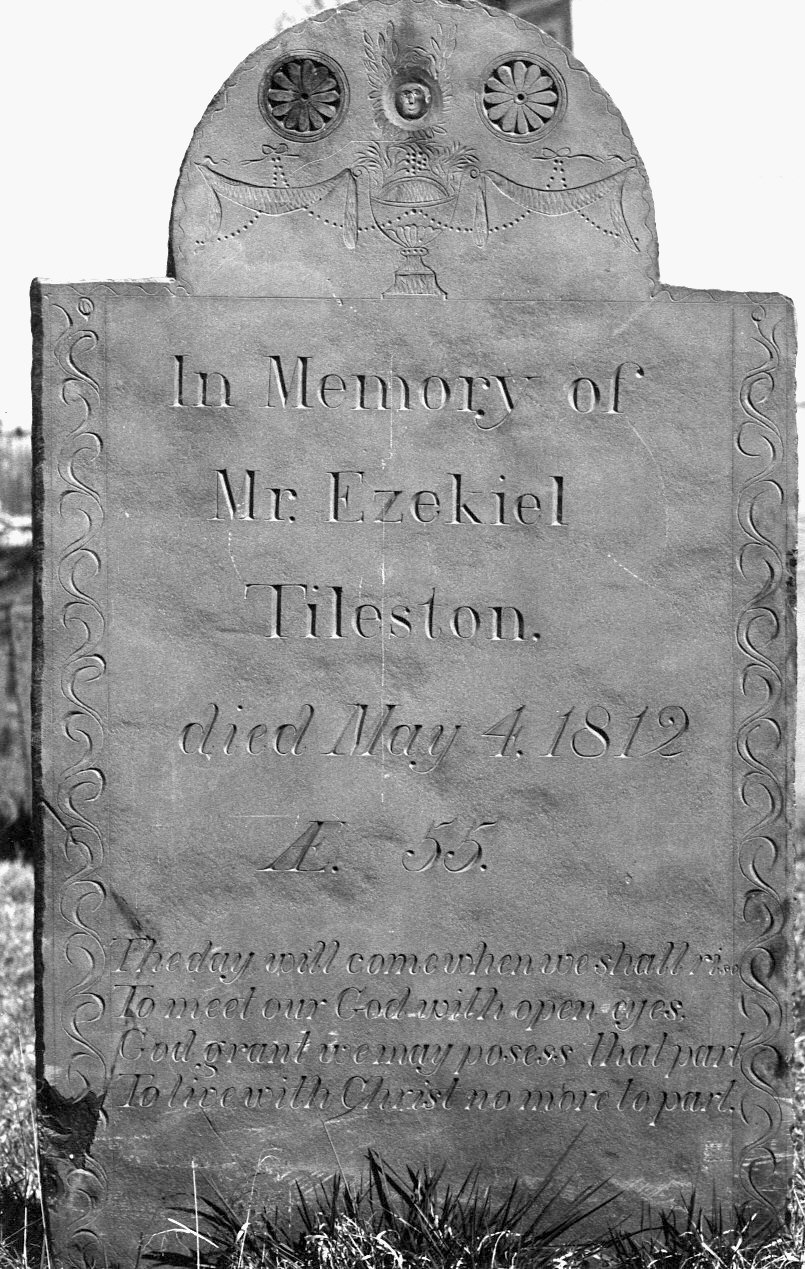 In Memory of
Mr. Ezekiel
Tileston.
died May 4. 1812
Æ. 55.
The day will come when we shall rise
To meet our God with open eyes.
God grant we may posess that part
To live with Christ no more to part.